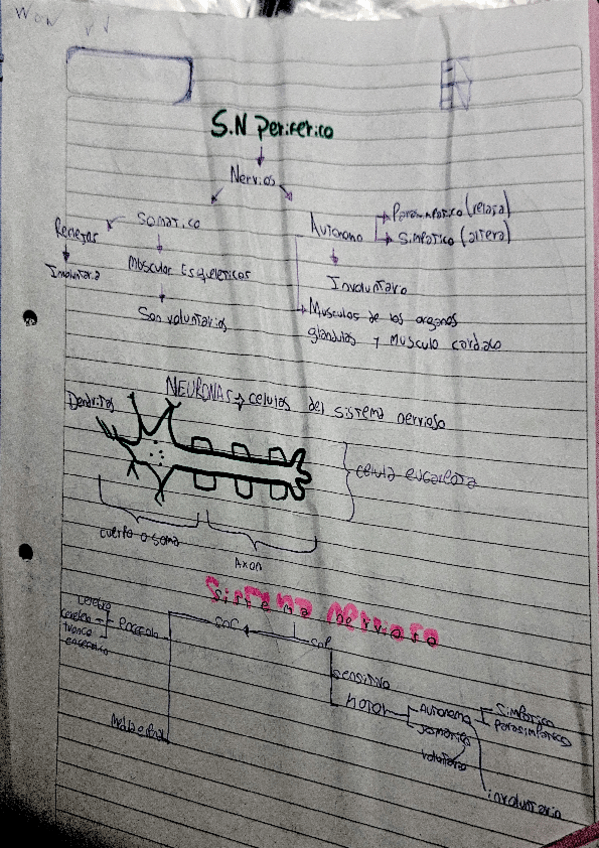 S.N Periferico
Nervios
Somatico
Autonomo
Parasimpatico (relaja)
Simpatico (altera)
Reflejos
Involuntaria
Musculos Esqueleticos
Son voluntarios
Involuntario
Musculos de los organos
glandulas y Musculo cardiaco
NEURONAS → celulas del sistema nervioso
Dendritas
celula eucariota
cuerpo o soma
Axon
Sistema Nervioso
cerebro
tronco
Encefalo
SNC
SNP
sensitivo
Motor
Autonoma
Simpatico
Parasimpatico
voluntario
involuntario